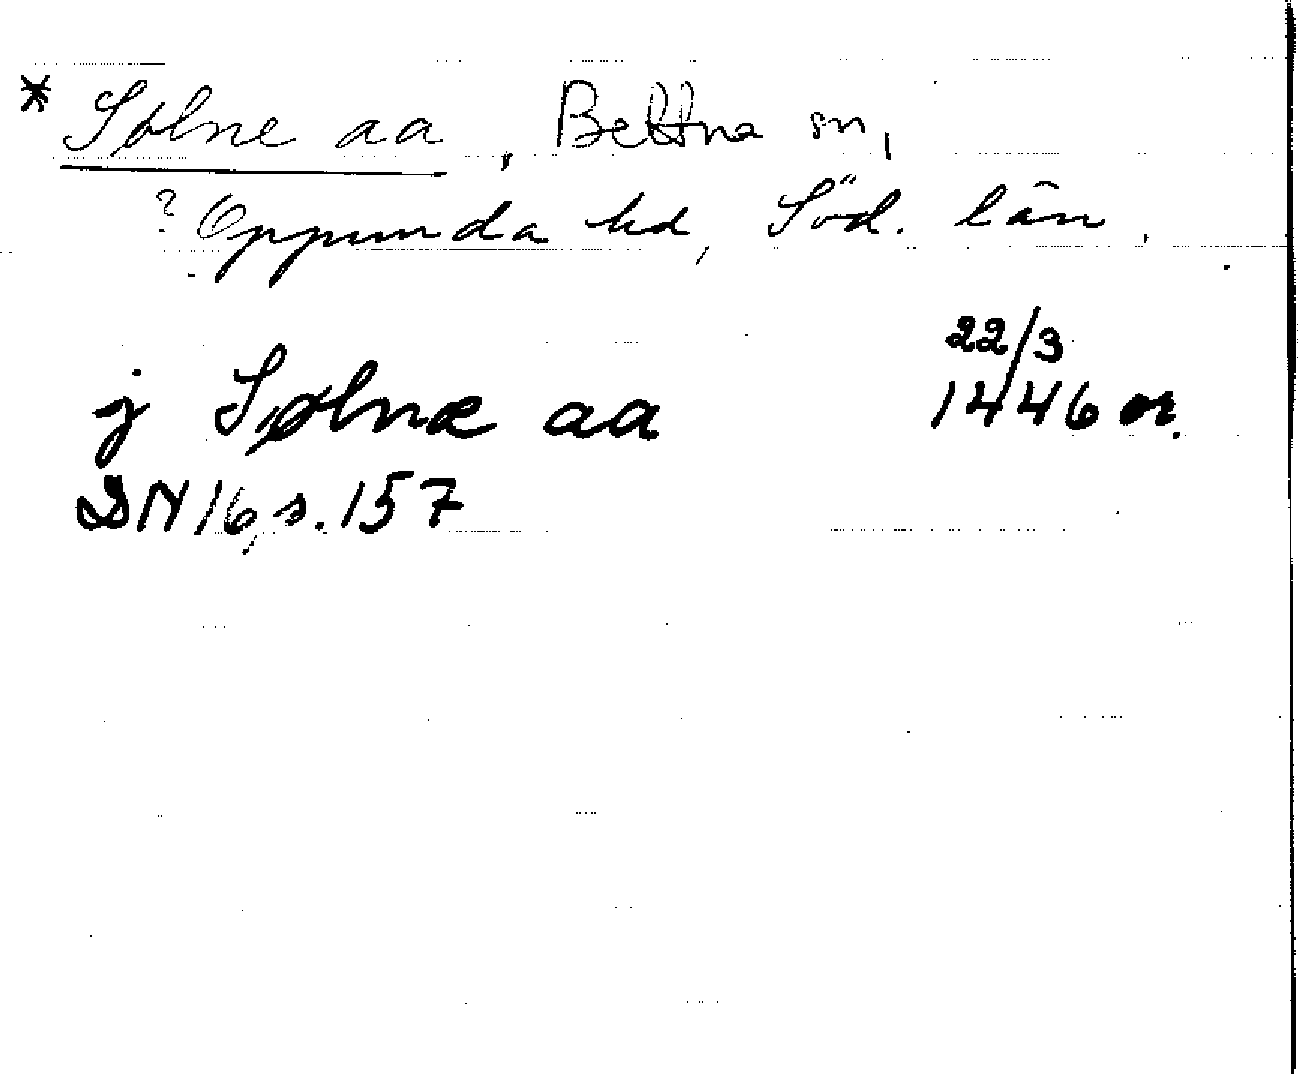 * Sølne aa, Bettna sn,
? Oppunda hd, Söd. län.
j Sølnæ aa 22/3 1446 or.
DN 16, s. 157